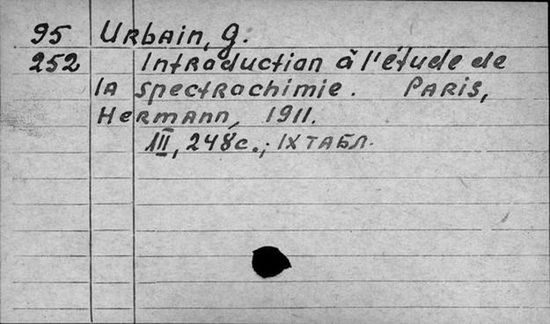 95 Urbain, G.
252 Introduction à l'étude de
la spectrochimie. Paris,
Hermann, 1911.
III, 248c.; IX табл.